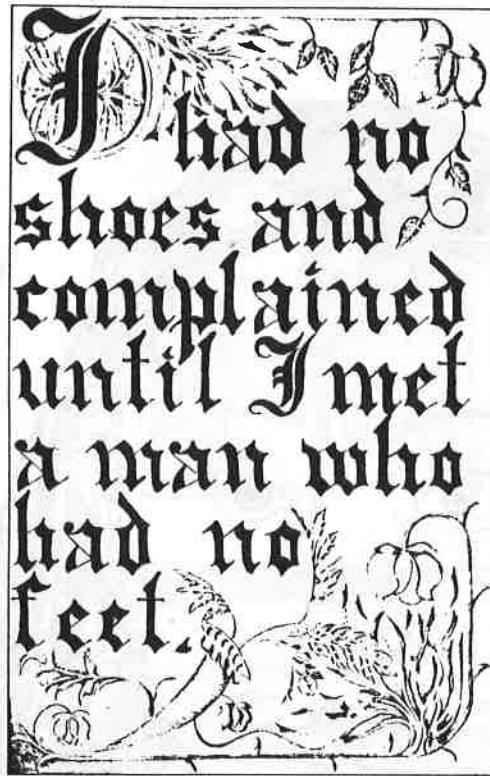 I had no
shoes and
complained
until I met
a man who
had no
feet.